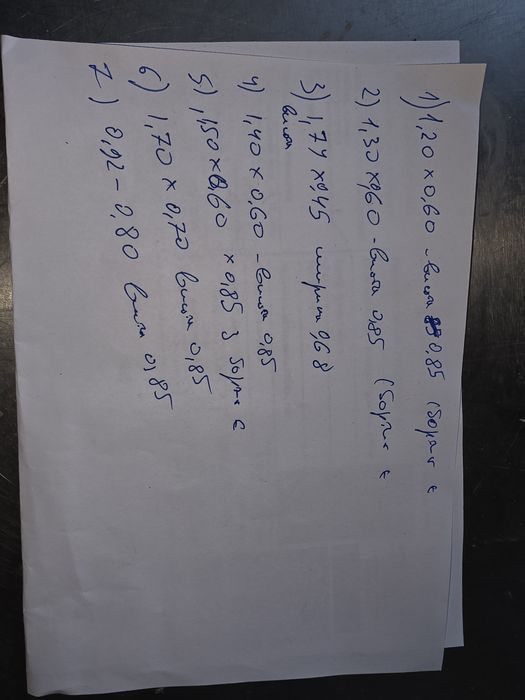 1) 1,20 x 0,60 - висота 0,85 (борт є
2) 1,30 x 0,60 - висота 0,85 (борт є
3) 1,74 x 0,45 ширина 0,68
висота
4) 1,40 x 0,60 - висота 0,85
5) 1,150 x 0,60 x 0,85 3 борт є
6) 1,70 x 0,70 висота 0,85
7) 0,92 - 0,80 0,85